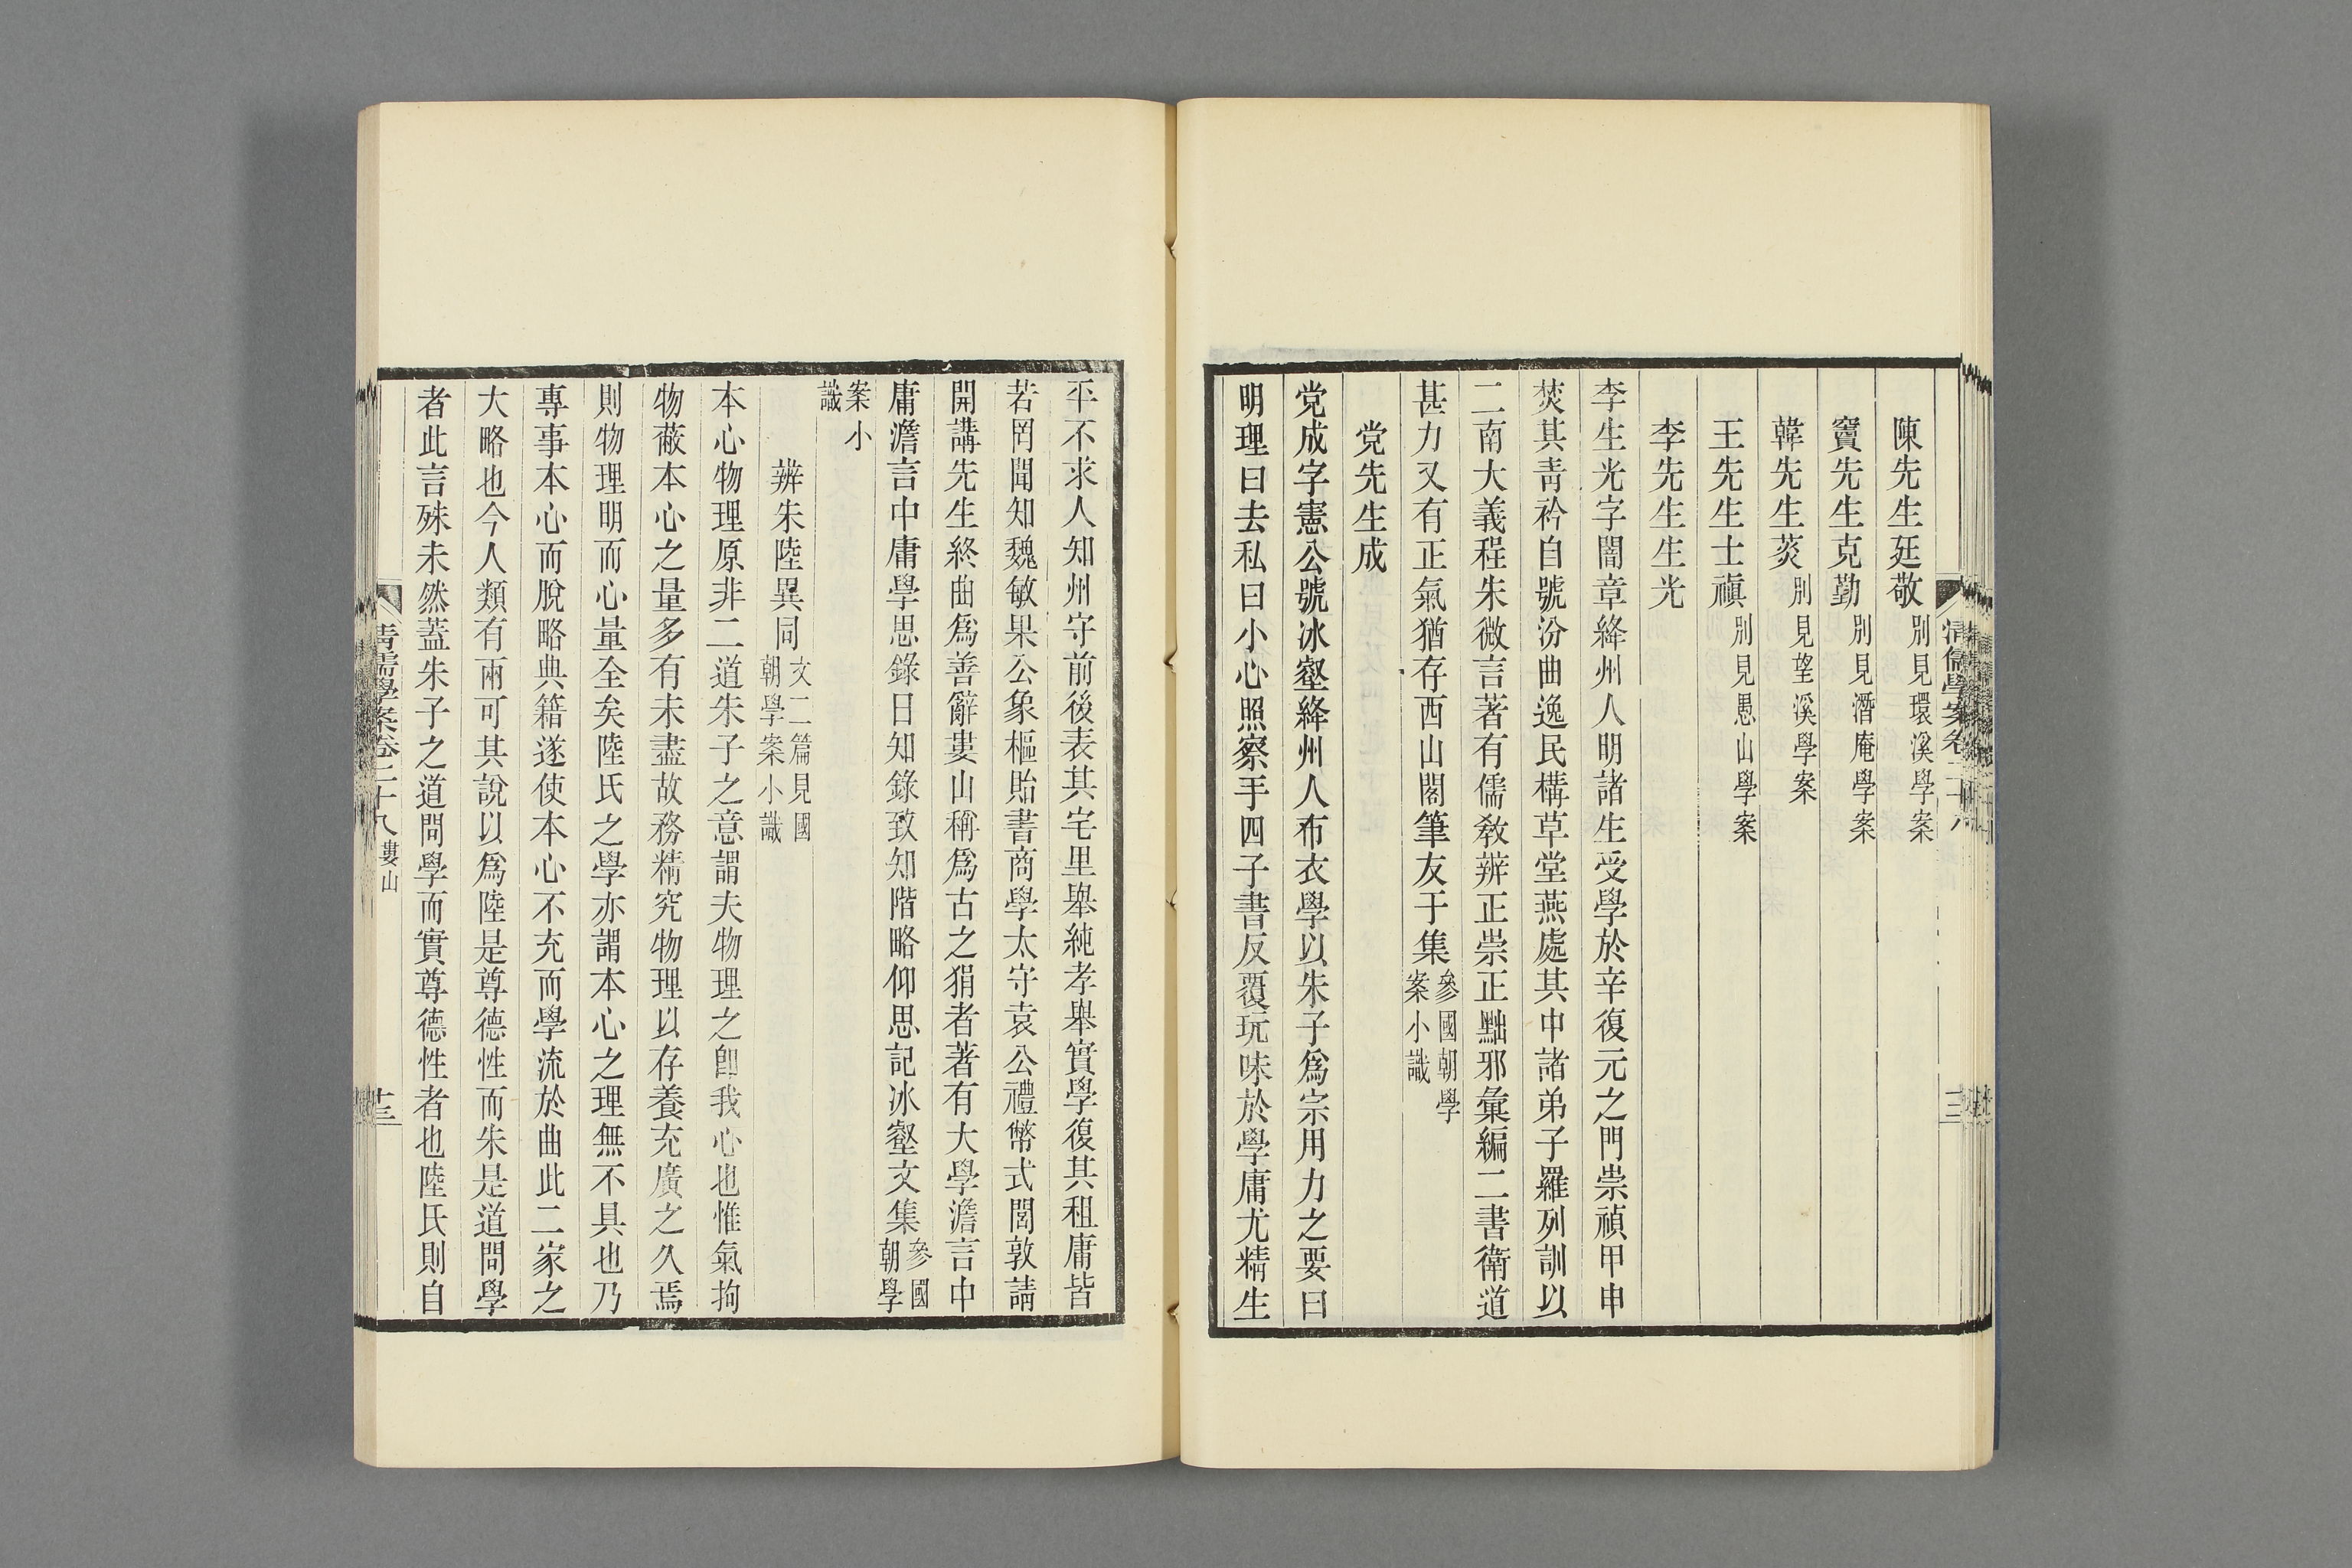 陳先生廷敬 別見環溪學案
竇先生克勤 別見潛庵學案
韓先生菼 別見望溪學案
王先生士禛 別見愚山學案
李先生生光
李生光字闇章絳州人明諸生受學於辛復元之門崇禎甲申
焚其靑衿自號汾曲逸民構草堂燕處其中諸弟子羅列訓以
二南大義程朱微言著有儒敎辨正崇正黜邪彙編二書衛道
甚力又有正氣猶存西山閣筆友于集 參國朝學案小識
党先生成
党成字憲公號冰壑絳州人布衣學以朱子爲宗用力之要曰
明理曰去私曰小心照察手四子書反覆玩味於學庸尤精生
平不求人知州守前後表其宅里舉純孝舉實學復其租庸皆
若罔聞知魏敏果公象樞貽書商學太守袁公禮幣式閭敦請
開講先生終曲爲善辭婁山稱爲古之狷者著有大學澹言中
庸澹言中庸學思錄日知錄致知階略仰思記冰壑文集 參國朝學
案小識
辨朱陸異同 文二篇見國朝學案小識
本心物理原非二道朱子之意謂夫物理之卽我心也惟氣拘
物蔽本心之量多有未盡故務精究物理以存養充廣之久焉
則物理明而心量全矣陸氏之學亦謂本心之理無不具也乃
專事本心而脫略典籍遂使本心不充而學流於曲此二家之
大略也今人類有兩可其說以爲陸是尊德性而朱是道問學
者此言殊未然蓋朱子之道問學而實尊德性者也陸氏則自
清儒學案卷二十八 婁山
十三